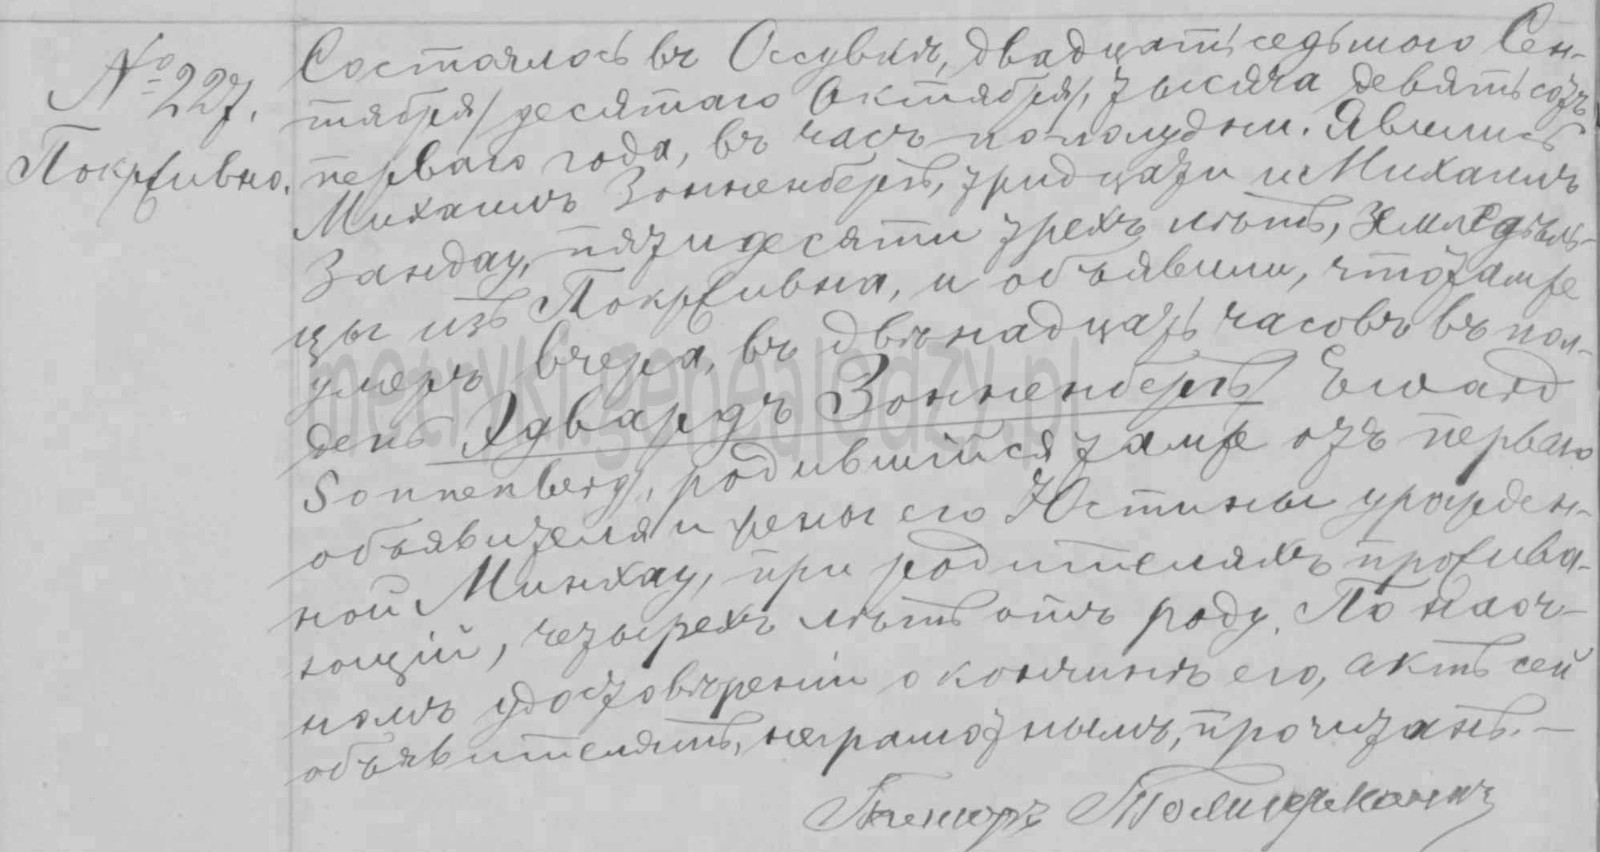 № 227.
Покрживно.
Состоялось въ Оссувкѣ, двадцать седьмого Сен-
тября/десятаго Октября/, тысяча девятьсотъ
перваго года, въ часъ по полудни. Явились
Михаилъ Зонненбергъ, тридцати и Михаилъ
Зандау, пятидесяти трехъ лѣтъ, земледѣль-
цы изъ Покрживна, и объявили, что тамже
умеръ вчера, въ двѣнадцать часовъ въ пол-
день Эдвардъ Зонненбергъ/ Edward
Sonnenberg/, родившійся тамже отъ перваго
объявителя и жены его Юстины урожден-
ной Минхау, при родителяхъ прожива-
ющій, четырехъ лѣтъ отъ роду. По наоч-
номъ удостовѣреніи о кончинѣ его, актъ сей
объявителямъ, неграмотнымъ, прочитанъ.—
metryki.genealodzy.pl